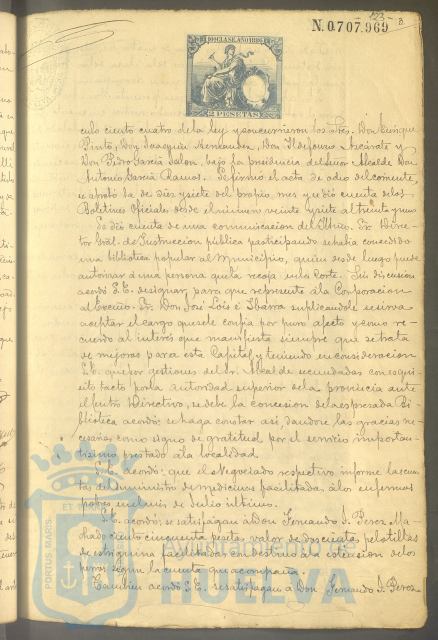 N.0.707.969
123
10ª CLASE. AÑO 1886
2 PESETAS
culo ciento cuatro de la ley y concurrieron los Sres. Don Enrique
Pinto, Don Joaquin Hernandez, Don Ildefonso Azcárate y
Don Pedro García Jalon, bajo la presidencia del Señor Alcalde Don
Antonio García Ramos. Se firmó el acta de ocho del corriente,
se aprobó la de diez y siete del propio mes y se dió cuenta de los
Boletines Oficiales desde el número veinte y siete al treinta y uno
Se dió cuenta de una comunicacion del Iltmo. Sr. Direc-
tor Gral. de Instruccion pública participando se habia concedido
una biblioteca popular al Municipio, quien desde luego puede
autorizar á una persona que la recoja en la Corte. Sin discusion
acordó S.E. designar, para que represente á la Corporacion
al Excmo. Sr. Don José Lois é Ibarra suplicandole se sirva
aceptar el cargo que se le confia por puro afecto y como re-
cuerdo al interés que manifiesta siempre que se trata
de mejoras para esta Capital, y teniendo en consideracion
S.E. que por gestiones del Sr. Alcalde secundadas con esqui-
sito tacto por la autoridad superior de la provincia ante
el Centro Directivo, se debe la concesion de la espresada Bi-
blioteca acordó: se haga constar así, dandole las gracias ne-
cesarias como signo de gratitud por el servicio importan-
tísimo prestado á la localidad.
S.E. acordó: que el Negociado respectivo informe la cuen-
ta del suministro de medicinas facilitada á los enfermos
pobres en el mes de Julio último.
S.E. acordó: se satisfagan á Don Fernando J. Perez Ma-
chado ciento cincuenta pesetas valor de doscientas pelotillas
de estrignina facilitadas con destino á la estension de los
perros segun la cuenta que acompaña.
Tambien acordó S.E. se satisfagan á Don Fernando J. Perez
PORTUS MARIS
ET
Ayuntamiento de
HUELVA